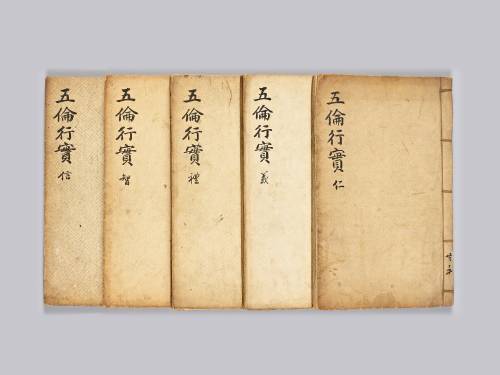 五倫行實 仁
五倫行實 義
五倫行實 禮
五倫行實 智
五倫行實 信